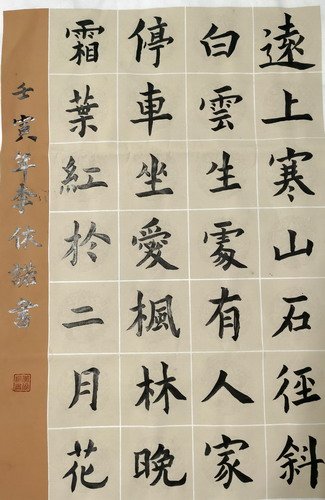 遠上寒山石徑斜
白雲生處有人家
停車坐愛楓林晚
霜葉紅於二月花
壬寅年李依諾書